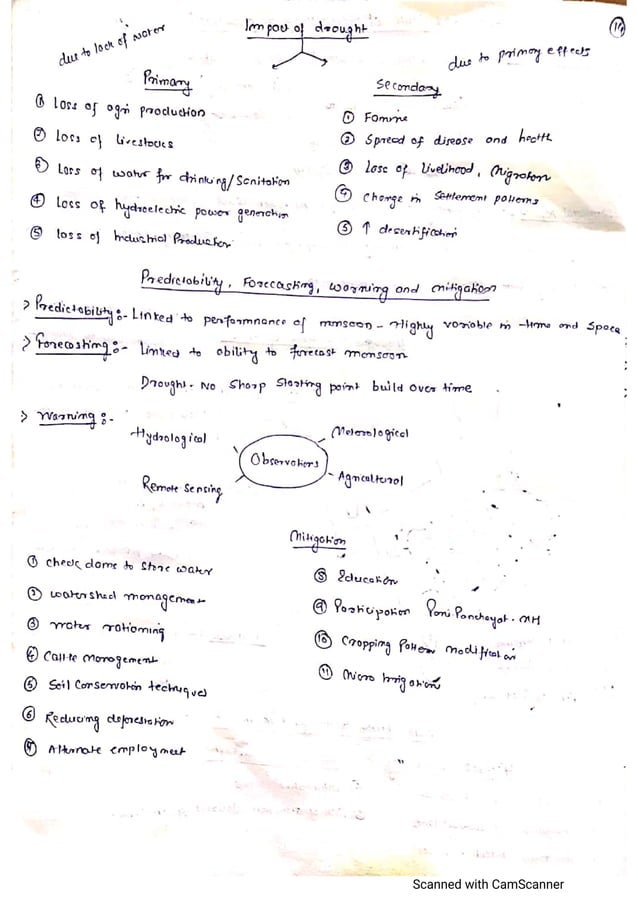 Impact of drought
14
due to lack of water
due to primary effects
Primary
① Loss of agri production
② Loss of livestocks
③ Loss of water for drinking/Sanitation
④ Loss of hydroelectric power generation
⑤ loss of Industrial Production
Secondary
① Famine
② Spread of disease and health
③ Lose of Livelihood, Migration
④ Change in Settlement patterns
⑤ ↑ desertification
Predictability, Forecasting, warning and mitigation
> Predictability:- Linked to performnance of monsoon - Highly variable in time and Space
> Forecasting:- Linked to ability to forecast monsoon
Drought - No Sharp Starting point build over time
> Warning:-
Hydrological
Meterological
Observations
Remote Sensing
Agricultural
Mitigation
① check dams to store water
② watershed management
③ water rationing
④ Cattle management
⑤ Soil Conservation techniques
⑥ Reducing deforestation
⑦ Alternate employment
⑧ Education
⑨ Participation Pani Panchayat - MH
⑩ Cropping Pattern modification
⑪ Micro Irrigation
Scanned with CamScanner